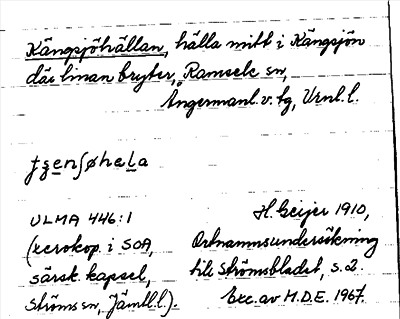 Kängsjöhällan, hälla mitt i Kängsjön
där linan bryter, Ramsele sn,
Ångermanl. v. tg, Vrnl. l.
ULMA 446:1
(xerokop. i SOA,
särsk. kapsel,
Ströms sn, Jämtl. l.).
H. Geijer 1910,
Ortnamnsundersökning
till Strömsbladet, s. 2.
Exc. av M.D.E. 1967.